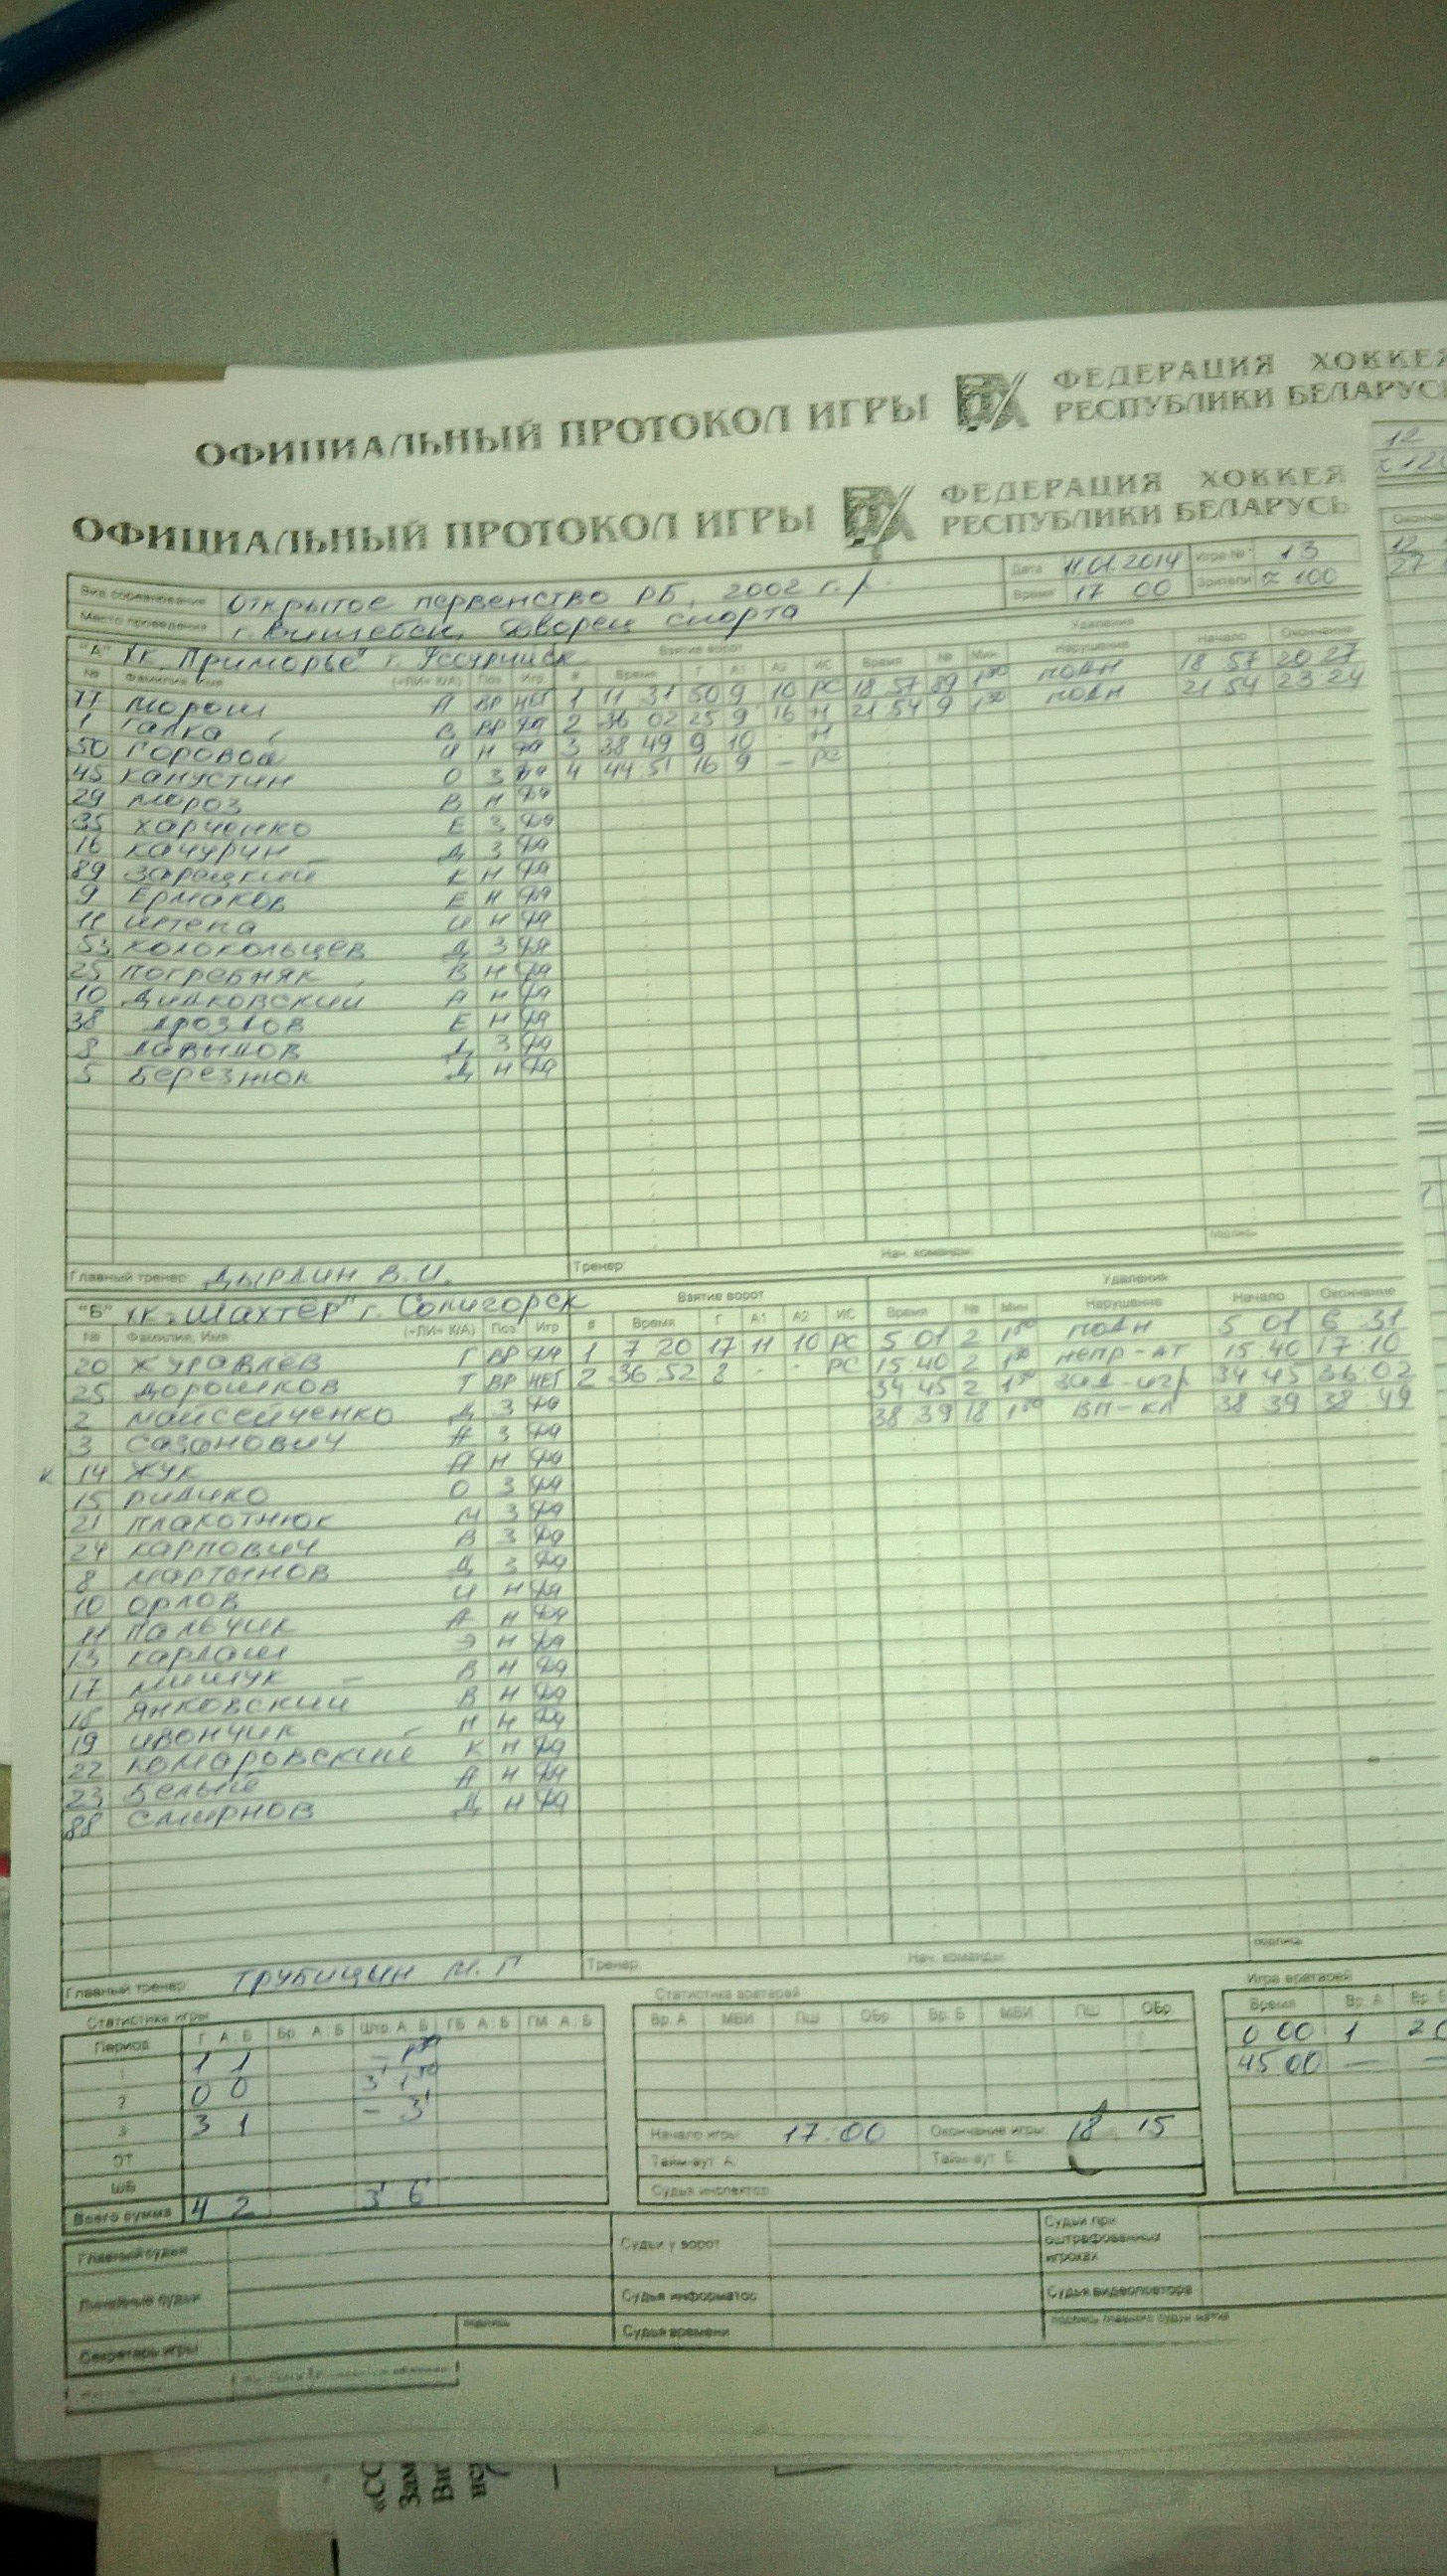 ОФИЦИАЛЬНЫЙ ПРОТОКОЛ ИГРЫ ФЕДЕРАЦИЯ ХОККЕЯ
РЕСПУБЛИКИ БЕЛАРУСЬ
ОФИЦИАЛЬНЫЙ ПРОТОКОЛ ИГРЫ ФЕДЕРАЦИЯ ХОККЕЯ
РЕСПУБЛИКИ БЕЛАРУСЬ
Вид соревнования Открытое первенство РБ, 2002 г.р. Дата 11.01.2014 Игра № 13
Место проведения г. Витебск, Дворец спорта Время 17 00 Зрители ≈ 100
"А" ХК "Приморье" г. Уссурийск Взятие ворот Удаления
№ Фамилия, Имя (=ЛИ= К/А) Поз Игр # Время Г А1 А2 ИС Время № Мин Нарушение Начало Окончание
77 Морош А ВР НЕТ 1 11 31 50 9 10 РС 18 57 89 1'30 ПОДН 18 57 20 27
1 Галка В ВР ДА 2 36 02 25 9 16 Н 21 54 9 1'30 ПОДН 21 54 23 24
50 Горовой И Н ДА 3 38 49 9 10 - Н
45 Капустин О З ДА 4 44 51 16 9 - РС
29 Мороз В Н ДА
35 Харченко Е З ДА
16 Качурин Д З ДА
89 Зарецкий К Н ДА
9 Ермаков Е Н ДА
11 Штепа И Н ДА
53 Колокольцев Д З ДА
25 Погребняк В Н ДА
10 Дидковский А Н ДА
38 Дроздов Е Н ДА
8 Давыдов Д З ДА
5 Березнюк Д Н ДА
Главный тренер: Дырдин В.И. Тренер: Нач. команды:
"Б" ХК "Шахтёр" г. Солигорск Взятие ворот Удаления
№ Фамилия, Имя (=ЛИ= К/А) Поз Игр # Время Г А1 А2 ИС Время № Мин Нарушение Начало Окончание
20 Журавлёв Г ВР ДА 1 7 20 17 11 10 РС 5 01 2 1'30 ПОДН 5 01 6 31
25 Дорошков Т ВР НЕТ 2 36 52 8 - - РС 15 40 2 1'30 НЕПР-АТ 15 40 17 10
2 Майсейченко Д З ДА 34 45 2 1'30 ЗАД-ИГР 34 45 36 02
3 Сазанович А З ДА 38 39 18 1'30 ВП-КЛ 38 39 38 49
К 14 Жук А Н ДА
15 Ридико О З ДА
21 Плахотнюк М З ДА
24 Карпович В З ДА
8 Мартынов Д З ДА
10 Орлов И Н ДА
11 Пальчик А Н ДА
13 Карлаш Э Н ДА
17 Мишук В Н ДА
18 Янковский В Н ДА
19 Ивончик Н Н ДА
22 Комаровский К Н ДА
23 Белый А Н ДА
88 Смирнов Д Н ДА
Главный тренер: Трубицын М.Г Тренер: Нач. команды: подпись
Статистика игры Статистика вратарей Игра вратарей
Период Г А Б Бр А Б Штр А Б ГБ А Б ГМ А Б Вр. А МВИ ПШ ОБр Вр. Б МВИ ПШ ОБр Время Вр. А Вр. Б
1 1 1 - 1'30 0 00 1 20
2 0 0 3' 1'30 45 00 — —
3 3 1 - 3'
Начало игры: 17:00 Окончание игры: 18 15
ОТ
Тайм-аут А: Тайм-аут Б:
ШБ
Судья инспектор:
Всего сумма 4 2 3' 6'
Главный судья Судьи у ворот Судьи при оштрафованных игроках
Линейные судьи Судья информатор Судья видеоповтора
подпись
Секретарь игры Судья времени подпись главного судьи матча